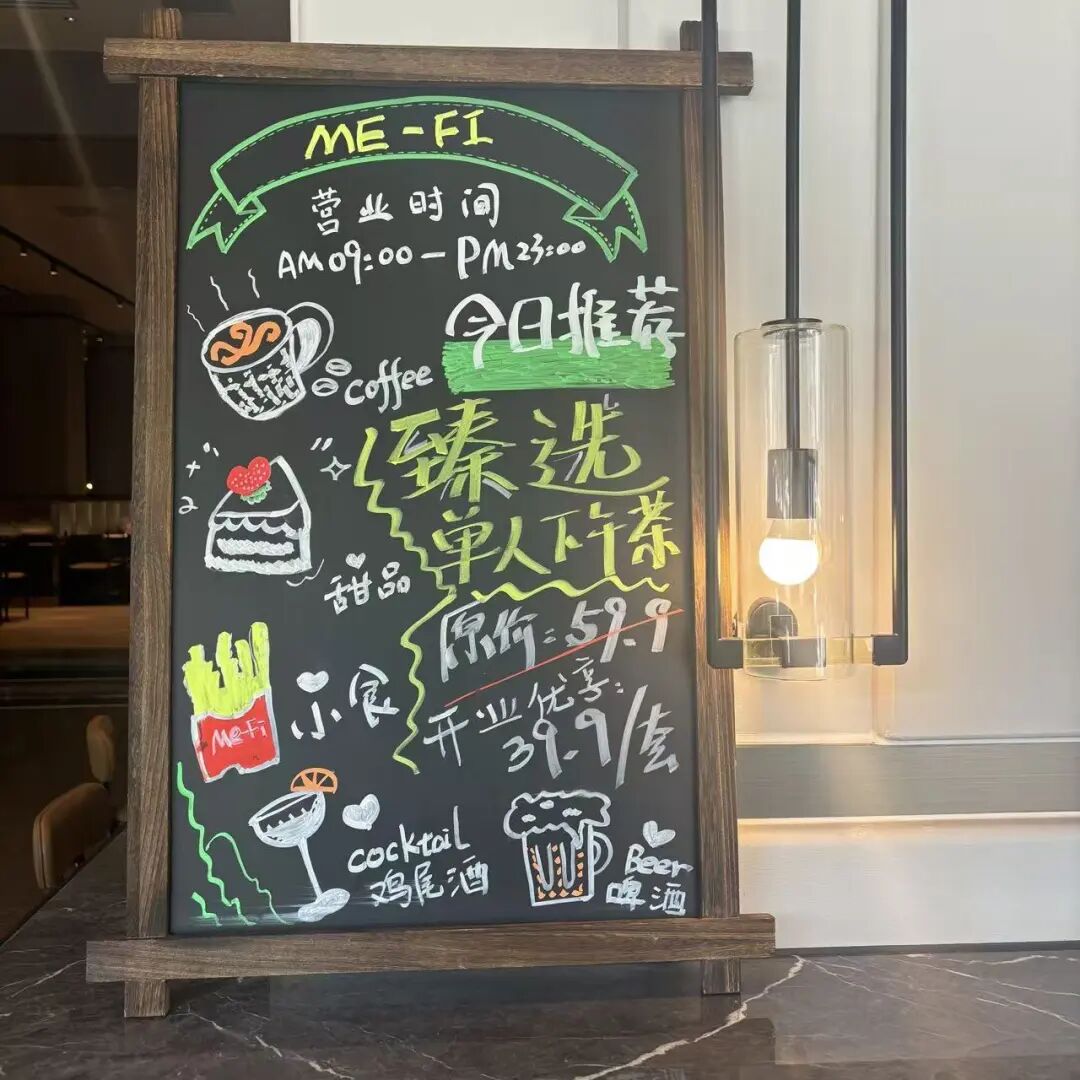 ME-FI
营业时间
AM09:00-PM23:00
今日推荐
coffee
臻选
单人下午茶
甜品
原价:59.9
小食
开业优享:
39.9/套
Me-Fi
cocktail
鸡尾酒
Beer
啤酒